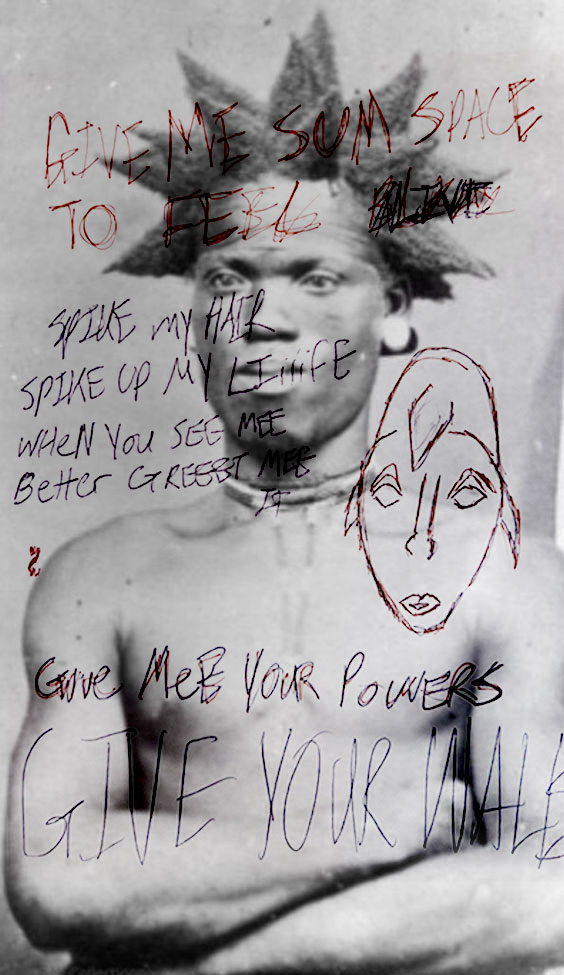 GIVE ME SUM SPACE
TO FEEL
SPIKE MY HAIR
SPIKE UP MY LIiiiFE
WHEN YOU SEE MEE
Better GREEET MEE
IT
Give MeE YOUR POWERS
GIVE YOUR